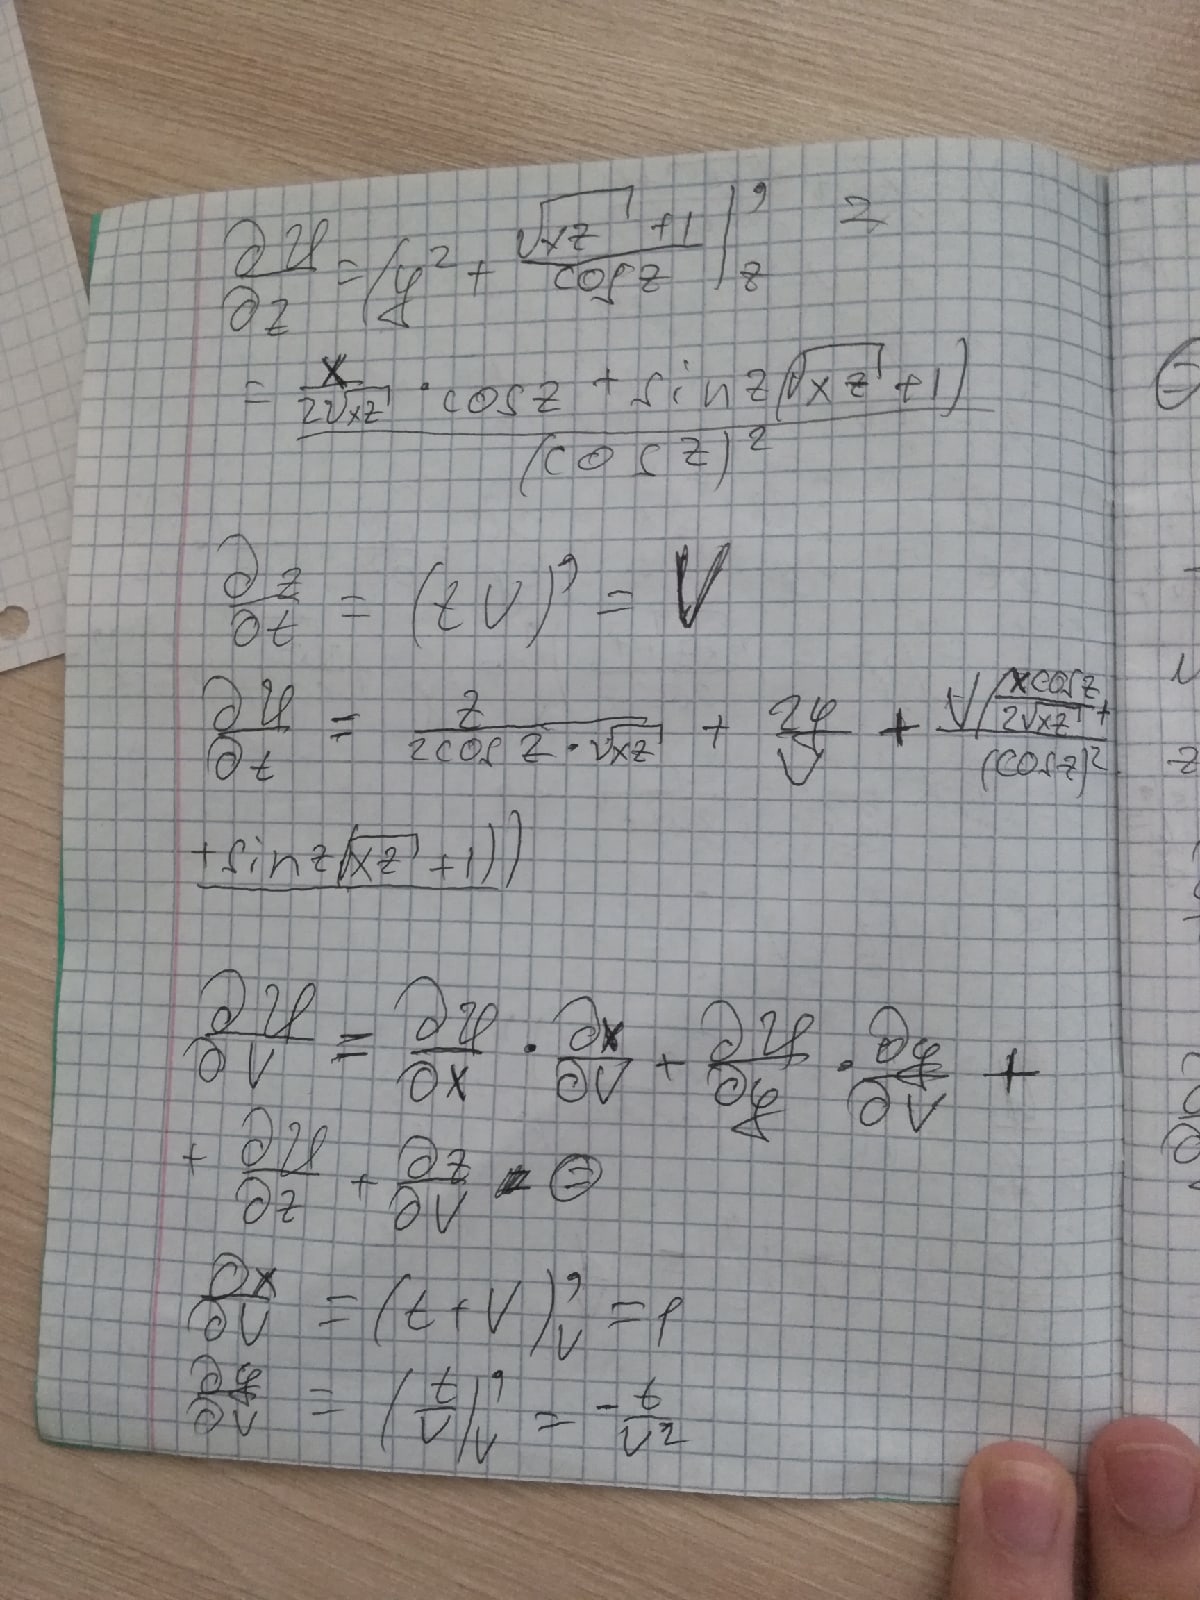 ∂U/∂z = (y² + (√(xz) + 1)/cos z)'_z =
= (x/(2√(xz)) · cos z + sin z(√(xz) + 1))/(cos z)²
∂z/∂t = (tV)' = V
∂U/∂t = z/(2cos z · √(xz)) + 2y/V + V(x cos z/(2√(xz)) + /(cos z)²
+ sin z(√(xz) + 1))
∂U/∂V = ∂U/∂x · ∂x/∂V + ∂U/∂y · ∂y/∂V +
+ ∂U/∂z + ∂z/∂V =
∂x/∂V = (t + V)'_V = 1
∂y/∂V = (t/V)'_V = - t/V²